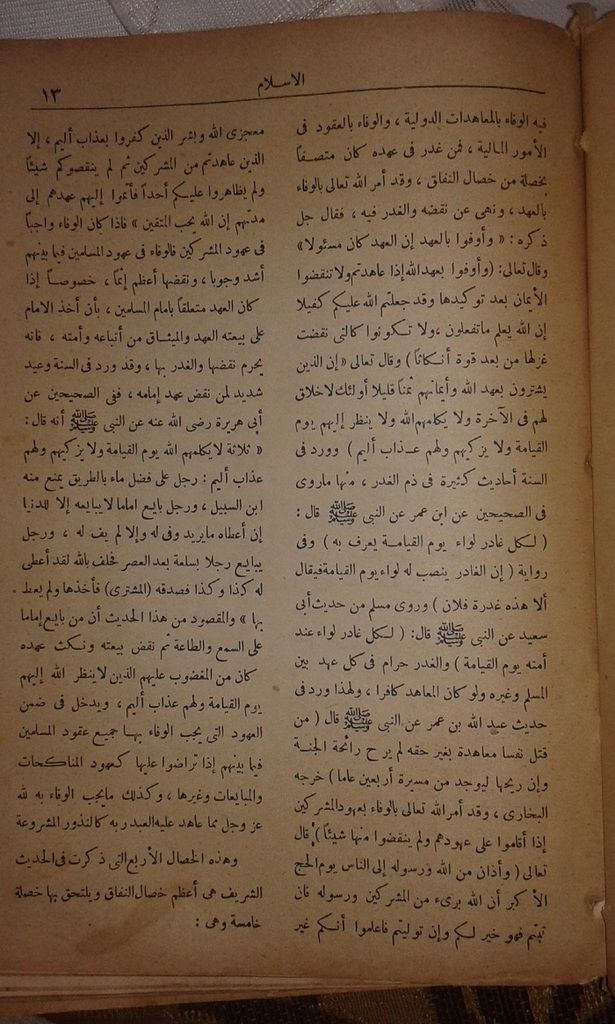 الاسلام
١٣
فيه الوفاء بالمعاهدات الدولية ، والوفاء بالعقود فى
الأمور المالية ، فمن غدر فى عهده كان متصفاً
بخصلة من خصال النفاق ، وقد أمر الله تعالى بالوفاء
بالعهد ، ونهى عن نقضه والغدر فيه ، فقال جل
ذكره : « وأوفوا بالعهد إن العهد كان مسئولا »
وقال تعالى : (وأوفوا بعهد الله إذا عاهدتم ولا تنقضوا
الأيمان بعد توكيدها وقد جعلتم الله عليكم كفيلا
إن الله يعلم ما تفعلون ، ولا تكونوا كالتى نقضت
غزلها من بعد قوة أنكاثا ) وقال تعالى « إن الذين
يشترون بعهد الله وأيمانهم ثمنا قليلا أولئك لاخلاق
لهم فى الآخرة ولا يكلمهم الله ولا ينظر إليهم يوم
القيامة ولا يزكيهم ولهم عذاب أليم ) وورد فى
السنة أحاديث كثيرة فى ذم الغدر ، منها ماروى
فى الصحيحين عن ابن عمر عن النبى ﷺ قال :
( لكل غادر لواء يوم القيامة يعرف به ) وفى
رواية ( إن الغادر ينصب له لواء يوم القيامة فيقال
ألا هذه غدرة فلان ) وروى مسلم من حديث أبى
سعيد عن النبى ﷺ قال : ( لكل غادر لواء عند
أمته يوم القيامة ) والغدر حرام فى كل عهد بين
المسلم وغيره ولو كان المعاهد كافرا ، ولهذا ورد فى
حديث عبد الله بن عمر عن النبى ﷺ قال ( من
قتل نفسا معاهدة بغير حقه لم يرح رائحة الجنة
وإن ريحها ليوجد من مسيرة أربعين عاما ) خرجه
البخارى ، وقد أمر الله تعالى بالوفاء بعهود المشركين
إذا أقاموا على عهودهم ولم ينقضوا منها شيئاً ) قال
تعالى ( وأذان من الله ورسوله إلى الناس يوم الحج
الأكبر أن الله برىء من المشركين ورسوله فان
تبتم فهو خير لكم وإن توليتم فاعلموا أنكم غير
معجزى الله وبشر الذين كفروا بعذاب أليم ، إلا
الذين عاهدتم من المشركين ثم لم ينقصوكم شيئاً
ولم يظاهروا عليكم أحداً فأتموا إليهم عهدهم إلى
مدتهم إن الله يحب المتقين » فاذا كان الوفاء واجباً
فى عهود المشركين فالوفاء فى عهود المسلمين فيما بينهم
أشد وجوبا ، ونقضها أعظم إثما ، خصوصاً إذا
كان العهد متعلقاً بامام المسلمين ، بأن أخذ الامام
على بيعته العهد والميثاق من أتباعه وأمته ، فانه
يحرم نقضها والغدر بها ، وقد ورد فى السنة وعيد
شديد لمن نقض عهد إمامه ، ففى الصحيحين عن
أبى هريرة رضى الله عنه عن النبى ﷺ أنه قال :
« ثلاثة لايكلمهم الله يوم القيامة ولا يزكيهم ولهم
عذاب أليم : رجل على فضل ماء بالطريق يمنع منه
ابن السبيل ، ورجل بايع اماما لايبايعه إلا للدنيا
إن أعطاه مايريد وفى له وإلا لم يف له ، ورجل
يبايع رجلا بسلعة بعد العصر فحلف بالله لقد أعطى
له كذا وكذا فصدقه (المشترى) فأخذها ولم يعط
بها » والمقصود من هذا الحديث أن من بايع إماما
على السمع والطاعة ثم نقض بيعته ونكث عهده
كان من المغضوب عليهم الذين لا ينظر الله إليهم
يوم القيامة ولهم عذاب أليم ، ويدخل فى ضمن
العهود التى يجب الوفاء بها جميع عقود المسلمين
فيما بينهم إذا تراضوا عليها كعهود المناكحات
والمبايعات وغيرها ، وكذلك مايجب الوفاء به لله
عز وجل مما عاهد عليه العبد ربه كالنذور المشروعة
وهذه الخصال الأربع التى ذكرت فى الحديث
الشريف هى أعظم خصال النفاق ويلتحق بها خصلة
خامسة وهى :